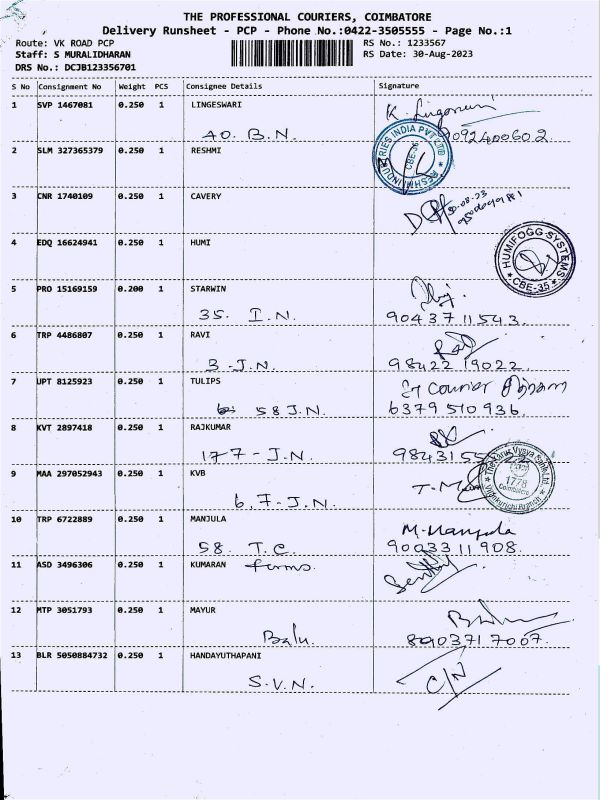 THE PROFESSIONAL COURIERS, COIMBATORE
Delivery Runsheet - PCP - Phone No.:0422-3505555 - Page No.:1
Route: VK ROAD PCP
Staff: S MURALIDHARAN
DRS No.: DCJB123356701
RS No.: 1233567
RS Date: 30-Aug-2023
S No Consignment No Weight PCS Consignee Details Signature
1 SVP 1467081 0.250 1 LINGESWARI
40. B.N.
2 SLM 327365379 0.250 1 RESHMI
RESHMI INDUSTRIES INDIA PVT LTD
CBE-35
3 CNR 1740109 0.250 1 CAVERY
30.08.23
4 EDQ 16624941 0.250 1 HUMI
HUMIFOGG SYSTEMS
CBE-35
5 PRO 15169159 0.200 1 STARWIN
35. I.N. 9043711543.
6 TRP 4486807 0.250 1 RAVI
3-J.N. 98422 19022
7 UPT 8125923 0.250 1 TULIPS
58 J.N. 6379510936.
8 KVT 2897418 0.250 1 RAJKUMAR
177-J.N. 98431
9 MAA 297052943 0.250 1 KVB
67-J.N.
The Karur Vysya Bank Ltd
1778
Coimbatore
10 TRP 6722889 0.250 1 MANJULA M. Manjula
58. T.C. 9003311908.
11 ASD 3496306 0.250 1 KUMARAN farms.
12 MTP 3051793 0.250 1 MAYUR
Balu. 8903717007.
13 BLR 5050884732 0.250 1 HANDAYUTHAPANI
S.V.N. C/N